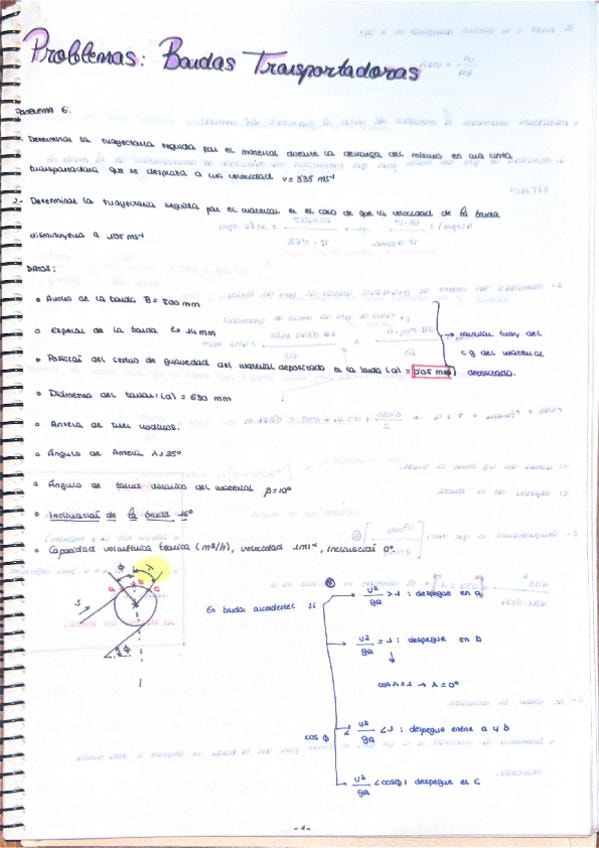 Problemas: Bandas Transportadoras
PROBLEMA 6.
1.- Determinar la trayectoria seguida por el material durante la descarga del mismo en una cinta
transportadora que se desplaza a una velocidad v = 3'35 ms⁻¹
2.- Determinar la trayectoria seguida por el material en el caso de que la velocidad de la banda
disminuyera a 1'05 ms⁻¹
DATOS:
• Ancho de la banda B = 800 mm
• Espesor de la banda e = 14 mm
• Posición del centro de gravedad del material depositado en la banda (a) =
→ calcular luego del
c g del material
depositado.
• Diámetro del tambor (d) = 630 mm
• Artesa de tres rodillos.
• Ángulo de Artesa λ = 35°
• Ángulo de talud dinámico del material β = 10°
• Inclinación de la banda 16°
• Capacidad volumétrica teórica (m³/h), velocidad 1ms⁻¹, inclinación 0°.
ϕ λ
a b c
S
ϕ
En bandas ascendentes si
v²/ga > 1 : despegue en a
v²/ga = 1 : despegue en b
cos λ = 1 → λ = 0°
cos ϕ < v²/ga < 1 : despegue entre a y b
v²/ga < cos ϕ : despegue en c
-1-